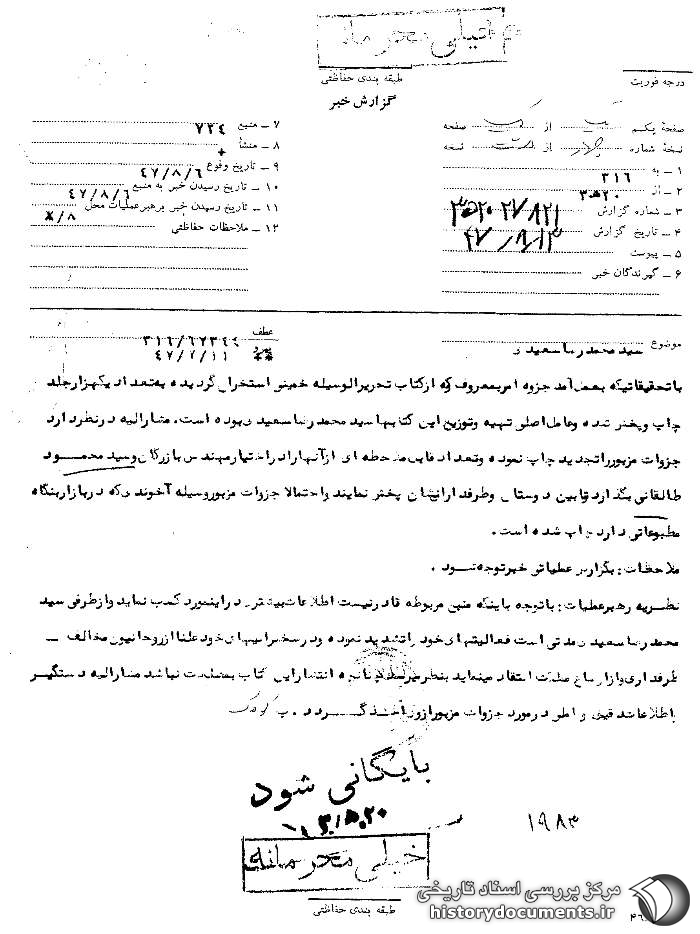 خیلی محرمانه
طبقه بندی حفاظتی
درجه فوریت
گزارش خبر
صفحه یکم از یک صفحه
نسخه شماره چهار از هشت نسخه
۱ ـ به ۳۱۶
۲ ـ از ۳۰هـ۲۰
۳ ـ شماره گزارش
۴ ـ تاریخ گزارش ۴۷/۸/۱۳
۵ ـ پیوست
۶ ـ گیرندگان خبر
۷ ـ منبع ۷۳۴
۸ ـ منشأ +
۹ ـ تاریخ وقوع ۴۷/۸/۶
۱۰ ـ تاریخ رسیدن خبر به منبع ۴۷/۸/۶
۱۱ ـ تاریخ رسیدن خبر برهبر عملیات محل ۸/۸
۱۲ ـ ملاحظات حفاظتی
موضوع سید محمد رضا سعیدی
عطف ۳۱۶/۶۷۳۴۴
۴۷/۷/۱۱
با تحقیقاتیکه بعمل آمد جزوه امر بمعروف که از کتاب تحریرالوسیله خمینی استخراج گردیده به تعداد یکهزار جلد
چاپ و پخش شده و عامل اصلی تهیه و توزیع این کتابها سید محمد رضا سعیدی بوده است. مشارالیه در نظر دارد
جزوات مزبور را تجدید چاپ نموده و تعداد قابل ملاحظه ای از آنها را در اختیار مهندس بازرگان و سید محمود
طالقانی بگذارد تا بین دوستان و طرفدارانشان پخش نمایند و احتمالا جزوات مزبور وسیله آخوندی که در بازار بنگاه
مطبوعاتی دارد چاپ شده است.
ملاحظات: بگزارش عملیاتی خبر توجه شود.
نظریه رهبر عملیات: با توجه باینکه منبع مربوطه قادر نیست اطلاعات بیشتری در اینمورد کسب نماید و از طرفی سید
محمد رضا سعیدی مدتی است فعالیتهای خود را تشدید نموده و در سخنرانیهای خود علنا از روحانیون مخالف ـ
طرفداری و از اوضاع مملکت انتقاد مینماید بنظر میرسد چنانچه انتشار این کتاب بمصلحت نباشد مشارالیه دستگیر
و اطلاعات دقیق و اصلی در مورد جزوات مزبور از وی اخذ گردد.
بایگانی شود
۱۹۸۳
خیلی محرمانه
طبقه بندی حفاظتی
مرکز بررسی اسناد تاریخی
historydocuments.ir